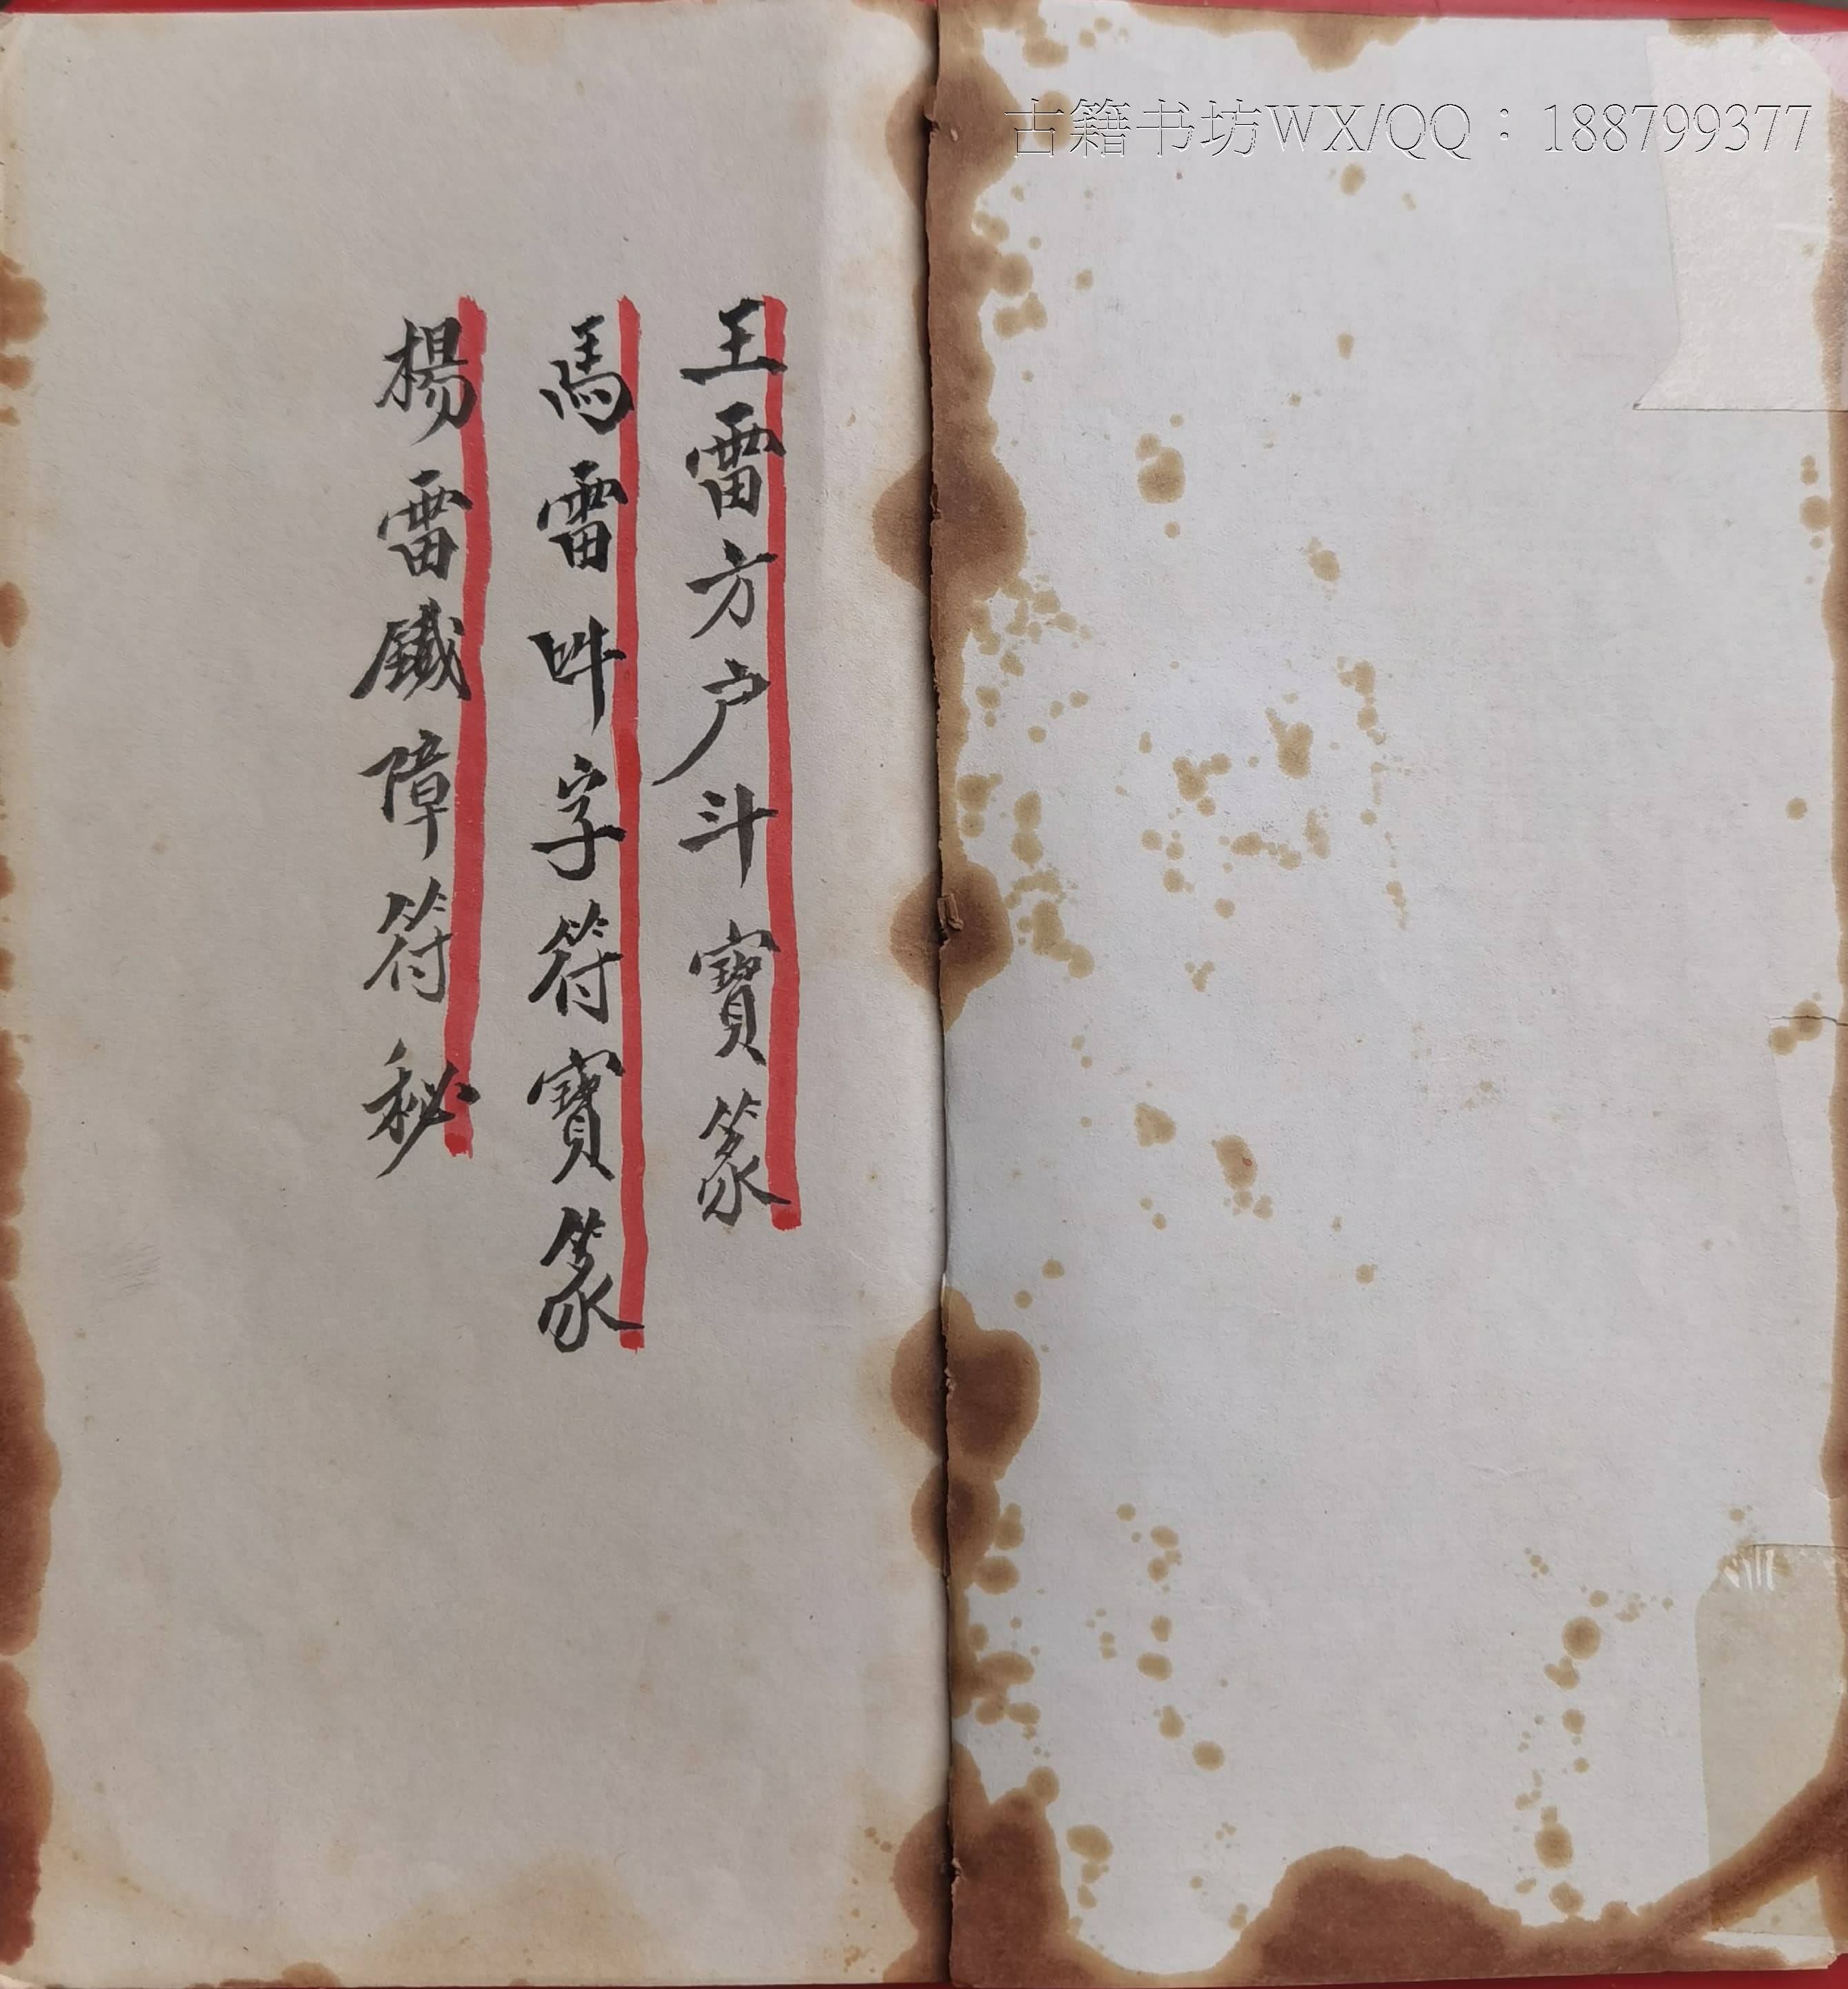 古籍书坊WX/QQ：188799377
王雷方户斗寶篆
馬雷吽字符寶篆
楊雷鐵障符秘